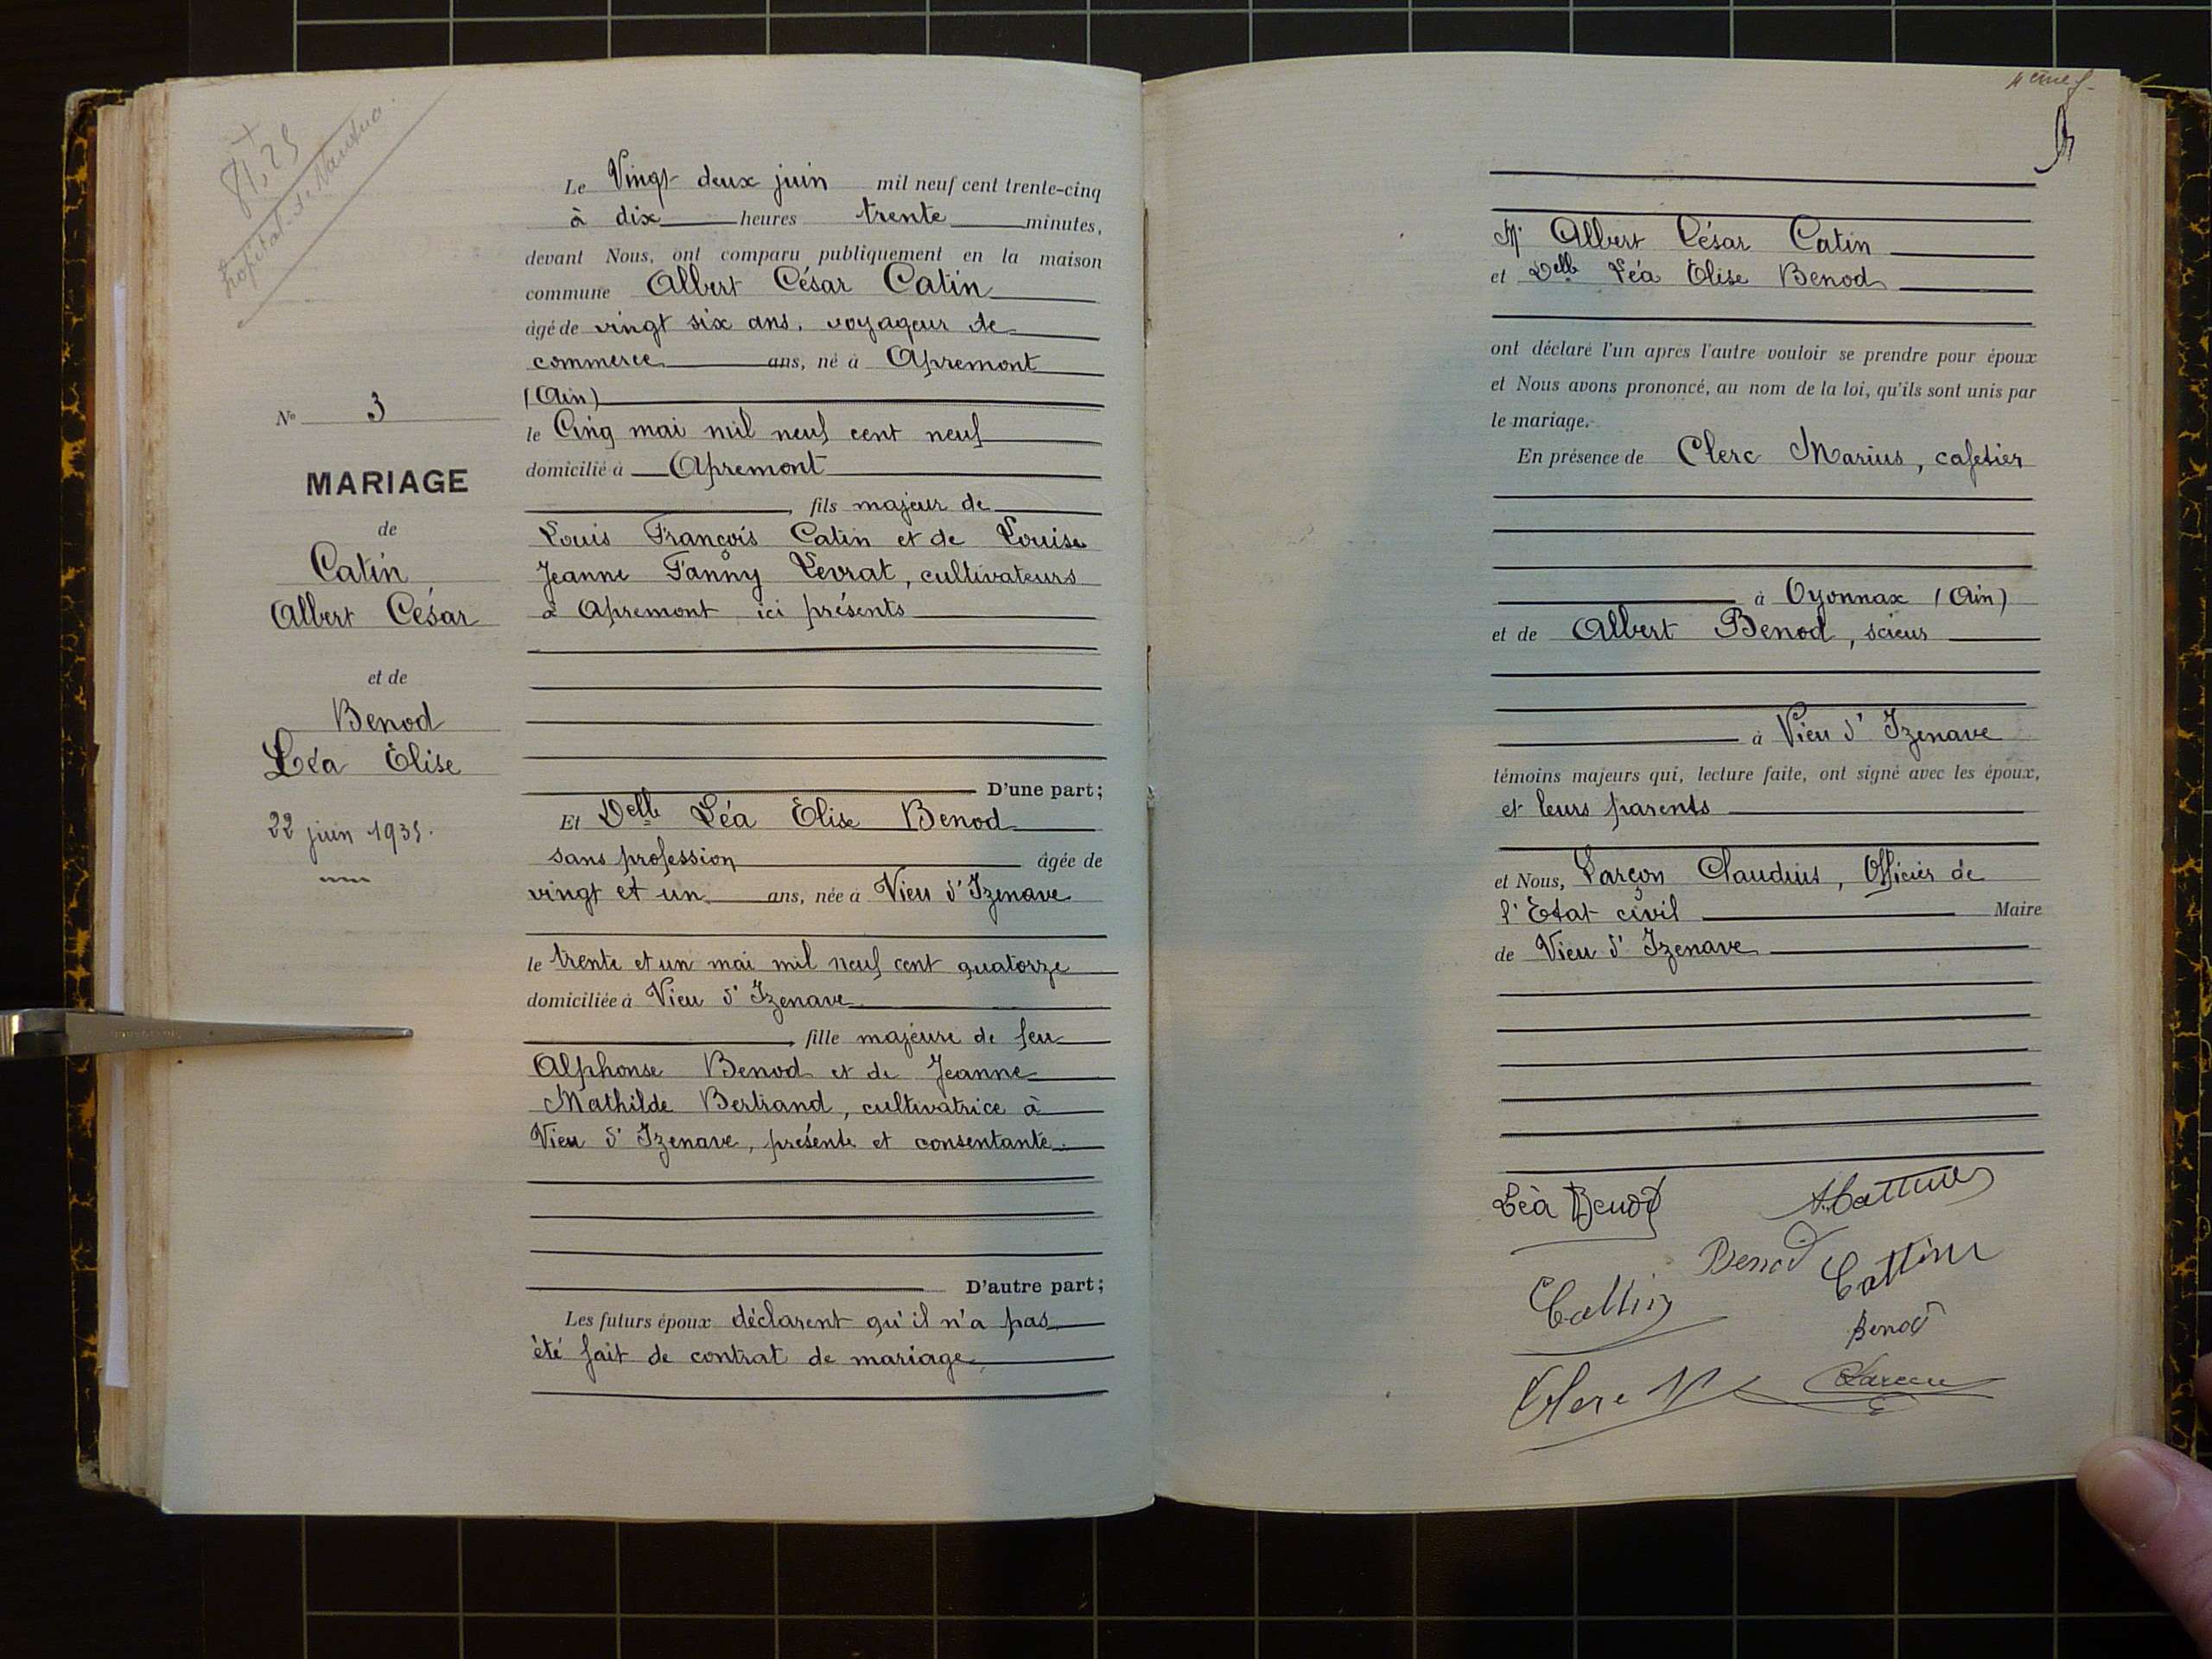 81,25
hopital de Nantua.
N° 3
MARIAGE
de
Catin
Albert César
et de
Benod
Léa Elise
22 juin 1935.
Le Vingt deux juin mil neuf cent trente-cinq
à dix heures trente minutes,
devant Nous, ont comparu publiquement en la maison
commune Albert César Catin
âgé de vingt six ans, voyageur de
commerce ans, né à Apremont
(Ain)
le Cinq mai mil neuf cent neuf
domicilié à Apremont
, fils majeur de
Louis François Catin et de Louise
Jeanne Fanny Levrat, cultivateurs
à Apremont ici présents
D'une part;
Et Delle Léa Elise Benod
sans profession âgée de
vingt et un ans, née à Vieu d'Izenave
le trente et un mai mil neuf cent quatorze
domiciliée à Vieu d'Izenave
, fille majeure de feu
Alphonse Benod et de Jeanne
Mathilde Bertrand, cultivatrice à
Vieu d'Izenave, présente et consentante
D'autre part;
Les futurs époux déclarent qu'il n'a pas
été fait de contrat de mariage
Mr Albert César Catin
et Delle Léa Elise Benod
ont déclaré l'un après l'autre vouloir se prendre pour époux
et Nous avons prononcé, au nom de la loi, qu'ils sont unis par
le mariage.
En présence de Clerc Marius, cafetier
à Oyonnax (Ain)
et de Albert Benod, scieur
à Vieu d'Izenave
témoins majeurs qui, lecture faite, ont signé avec les époux,
et leurs parents
et Nous, Larçon Claudius, Officier de
l'Etat civil Maire
de Vieu d'Izenave
Léa Benod
Benod
Cattin
Cattin
Benod
Clerc M
Larçon